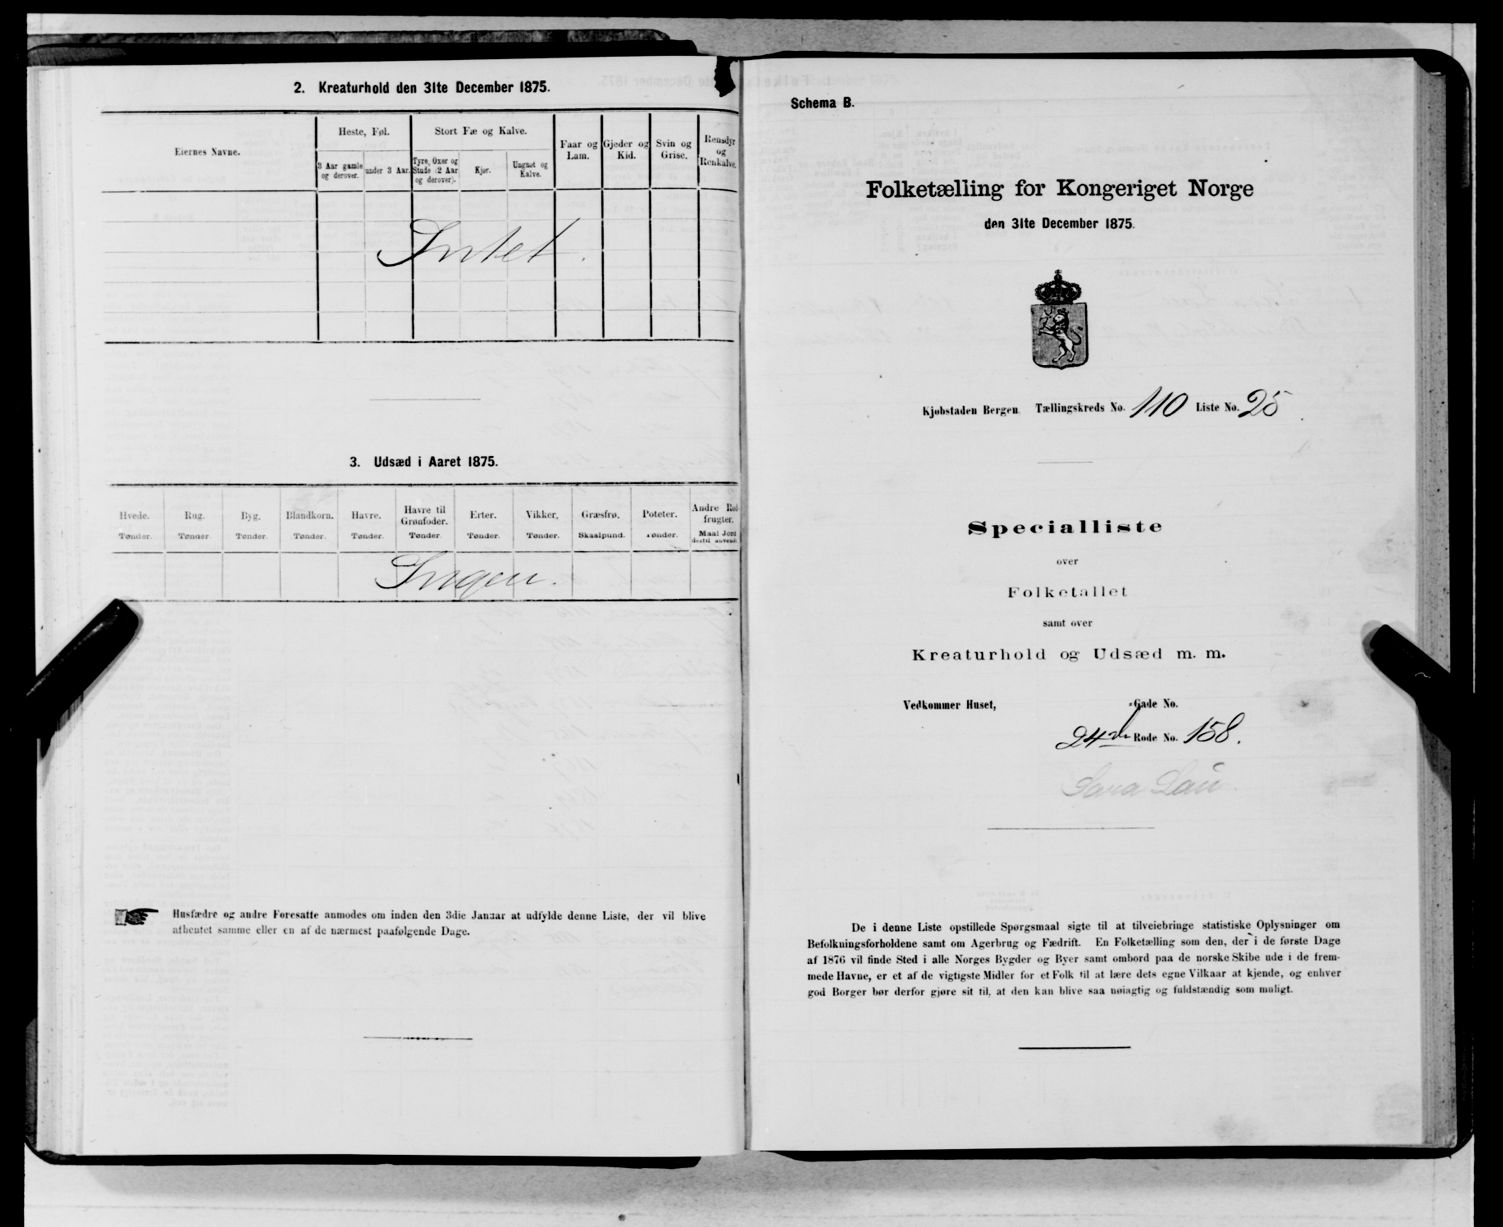 2. Kreaturhold den 31te December 1875.
Eiernes Navne.
Heste, Føl.
Stort Fæ og Kalve.
Faar og Lam.
Gjeder og Kid.
Svin og Grise.
Rensdyr og Renkalve.
3 Aar gamle og derover.
under 3 Aar.
Tyre, Oxer og Stude (2 Aar og derover).
Kjør.
Ungnøt og Kalve.
Intet.
3. Udsæd i Aaret 1875.
Hvede. Rug. Byg. Blandkorn. Havre. Havre til Grønfoder. Erter. Vikker. Græsfrø. Poteter. Andre Rodfrugter.
Tønder. Tønder Tønder. Tønder. Tønder. Tønder. Tønder. Tønder. Skaalpund. Tønder. Maal Jord dertil anvendt
Ingen.
Husfædre og andre Foresatte anmodes om inden den 3die Januar at udfylde denne Liste, der vil blive
afhentet samme eller en af de nærmest paafølgende Dage.
Schema B.
Folketælling for Kongeriget Norge
den 31te December 1875.
Kjøbstaden Bergen. Tællingskreds No. 110 Liste No. 25
Specialliste
over
Folketallet
samt over
Kreaturhold og Udsæd m. m.
Vedkommer Huset, Gade No.
24de Rode No. 158.
Sara Lau
De i denne Liste opstillede Spørgsmaal sigte til at tilveiebringe statistiske Oplysninger om
Befolkningsforholdene samt om Agerbrug og Fædrift. En Folketælling som den, der i de første Dage
af 1876 vil finde Sted i alle Norges Bygder og Byer samt ombord paa de norske Skibe ude i de frem-
mede Havne, er et af de vigtigste Midler for et Folk til at lære dets egne Vilkaar at kjende, og enhver
god Borger bør derfor gjøre sit til, at den kan blive saa nøiagtig og fuldstændig som muligt.